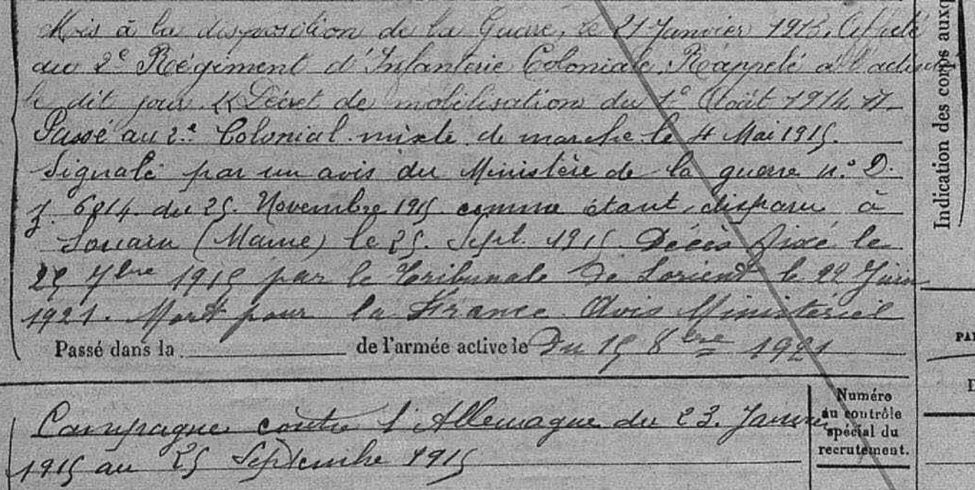 Mis à la disposition de la Guerre, le 21 Janvier 1915. Affecté
au 2e Régiment d'Infanterie Coloniale. Rappelé à l'activité
le dit jour. Décret de mobilisation du 1e Août 1914.
Passé au 2e Colonial mixte de marche le 4 Mai 1915.
Signalé par un avis du Ministère de la guerre n° D.
6814. du 25. Novembre 1915 comme étant disparu à
Souain (Marne) le 25. Sept. 1915. Décès fixé le
25 7bre 1915 par le Tribunale de Lorient le 22 Juin
1921. Mort pour la France Avis Ministériel
Passé dans la de l'armée active le Du 15 8bre 1921
Campagne contre l'Allemagne du 23. Janvier
1915 au 25 Septembre 1915
Numéro
au contrôle
spécial du
recrutement.
Indication des corps auxq